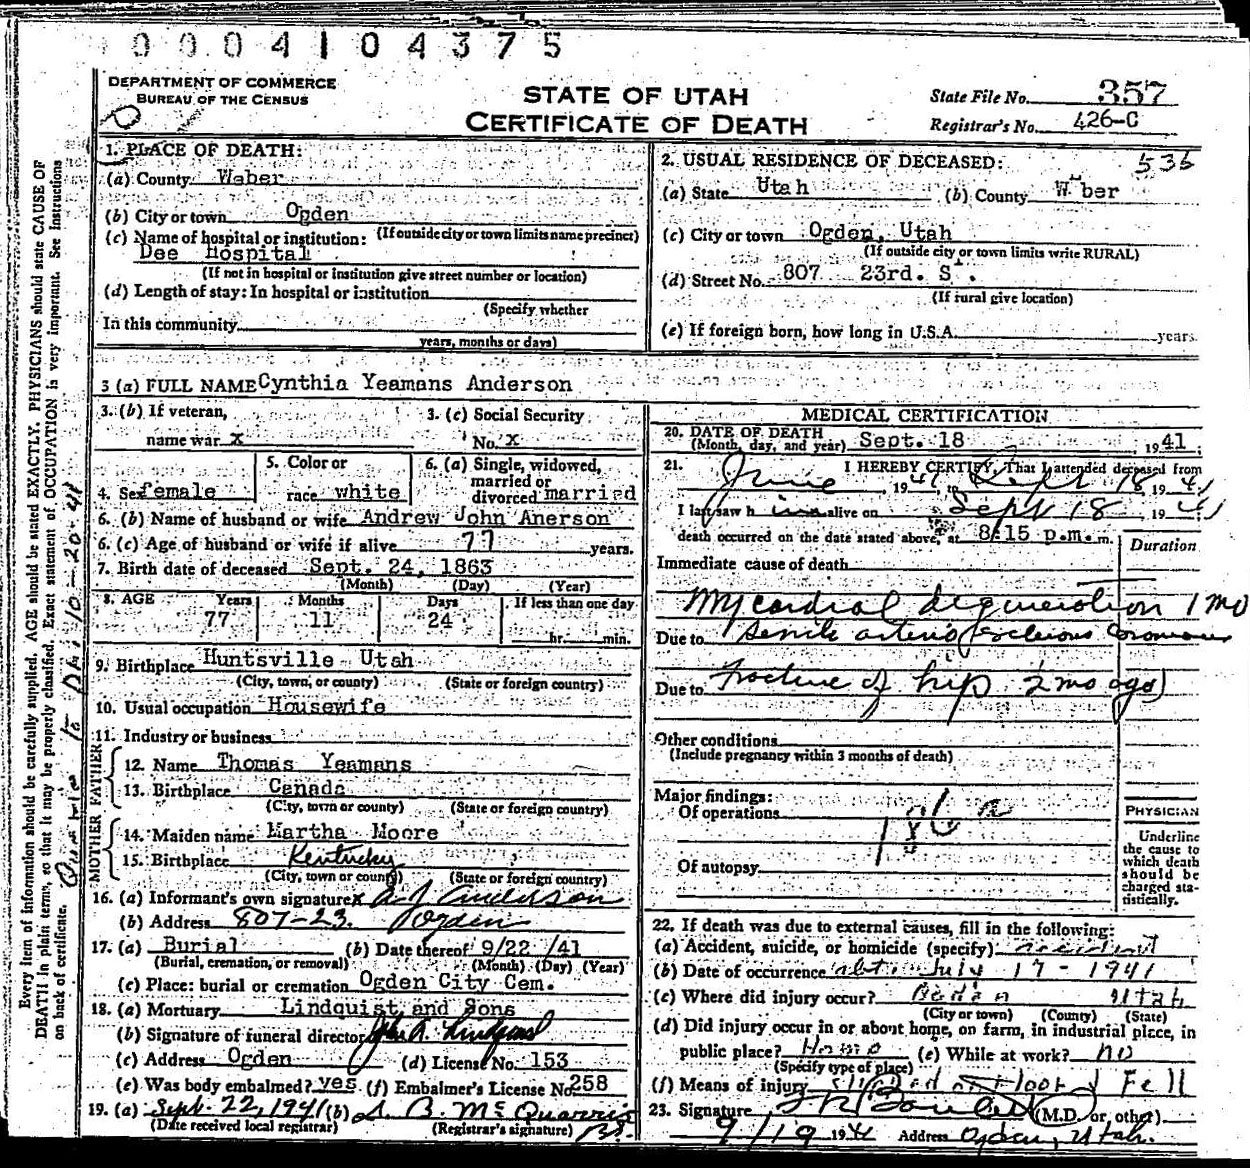 0004104375
DEPARTMENT OF COMMERCE
BUREAU OF THE CENSUS
STATE OF UTAH
CERTIFICATE OF DEATH
State File No. 357
Registrar's No. 426-C
536
1. PLACE OF DEATH:
(a) County Weber
(b) City or town Ogden
(If outside city or town limits name precinct)
(c) Name of hospital or institution:
Dee Hospital
(If not in hospital or institution give street number or location)
(d) Length of stay: In hospital or institution
(Specify whether
In this community
years, months or days)
2. USUAL RESIDENCE OF DECEASED:
(a) State Utah (b) County W ber
(c) City or town Ogden, Utah
(If outside city or town limits write RURAL)
(d) Street No. 807 23rd. S .
(If rural give location)
(e) If foreign born, how long in U.S.A. years
3 (a) FULL NAME Cynthia Yeamans Anderson
3. (b) If veteran,
name war x
3. (c) Social Security
No. x
4. Sex female
5. Color or
race white
6. (a) Single, widowed,
married or
divorced married
6. (b) Name of husband or wife Andrew John Anerson
6. (c) Age of husband or wife if alive 77 years.
7. Birth date of deceased Sept. 24, 1863
(Month) (Day) (Year)
8. AGE Years Months Days If less than one day
77 11 24 hr. min.
9. Birthplace Huntsville Utah
(City, town, or county) (State or foreign country)
10. Usual occupation Housewife
11. Industry or business
FATHER
12. Name Thomas Yeamans
13. Birthplace Canada
(City, town or county) (State or foreign country)
MOTHER
14. Maiden name Martha Moore
15. Birthplace Kentucky
(City, town or county) (State or foreign country)
16. (a) Informant's own signature x A J Anderson
(b) Address 807-23. Ogden
17. (a) Burial (b) Date thereof 9/22 /41
(Burial, cremation, or removal) (Month) (Day) (Year)
(c) Place: burial or cremation Ogden City Cem.
18. (a) Mortuary Lindquist and Sons
(b) Signature of funeral director John A. Lindquist
(c) Address Ogden (d) License No. 153
(e) Was body embalmed? yes (f) Embalmer's License No. 258
19. (a) Sept. 22, 1941 (b) B. McQuarrie
(Date received local registrar) (Registrar's signature)
MEDICAL CERTIFICATION
20. DATE OF DEATH
(Month, day, and year) Sept. 18, 1941.
21. I HEREBY CERTIFY, That I attended deceased from
June, 1941, to Sept 18 1941
I last saw h im alive on Sept 18 1941
death occurred on the date stated above, at 8:15 p.m. m.
Duration
Immediate cause of death
Myocardial degeneration 1 mo
Due to Senile arterio sclerosis
Due to Fracture of hip 2 mo ago
Other conditions
(Include pregnancy within 3 months of death)
Major findings:
Of operations
Of autopsy
PHYSICIAN
Underline
the cause to
which death
should be
charged sta-
tistically.
22. If death was due to external causes, fill in the following:
(a) Accident, suicide, or homicide (specify) accident
(b) Date of occurrence abt July 17 - 1941
(c) Where did injury occur? Ogden Utah
(City or town) (County) (State)
(d) Did injury occur in or about home, on farm, in industrial place, in
public place? Home (e) While at work? no
(Specify type of place)
(f) Means of injury slipped on floor & Fell
23. Signature (M.D. or other)
9/19 1941 Address Ogden, Utah.
Every item of information should be carefully supplied. AGE should be stated EXACTLY. PHYSICIANS should state CAUSE OF
DEATH in plain terms, so that it may be properly classified. Exact statement of OCCUPATION is very important. See Instructions
on back of certificate.
10-20-41